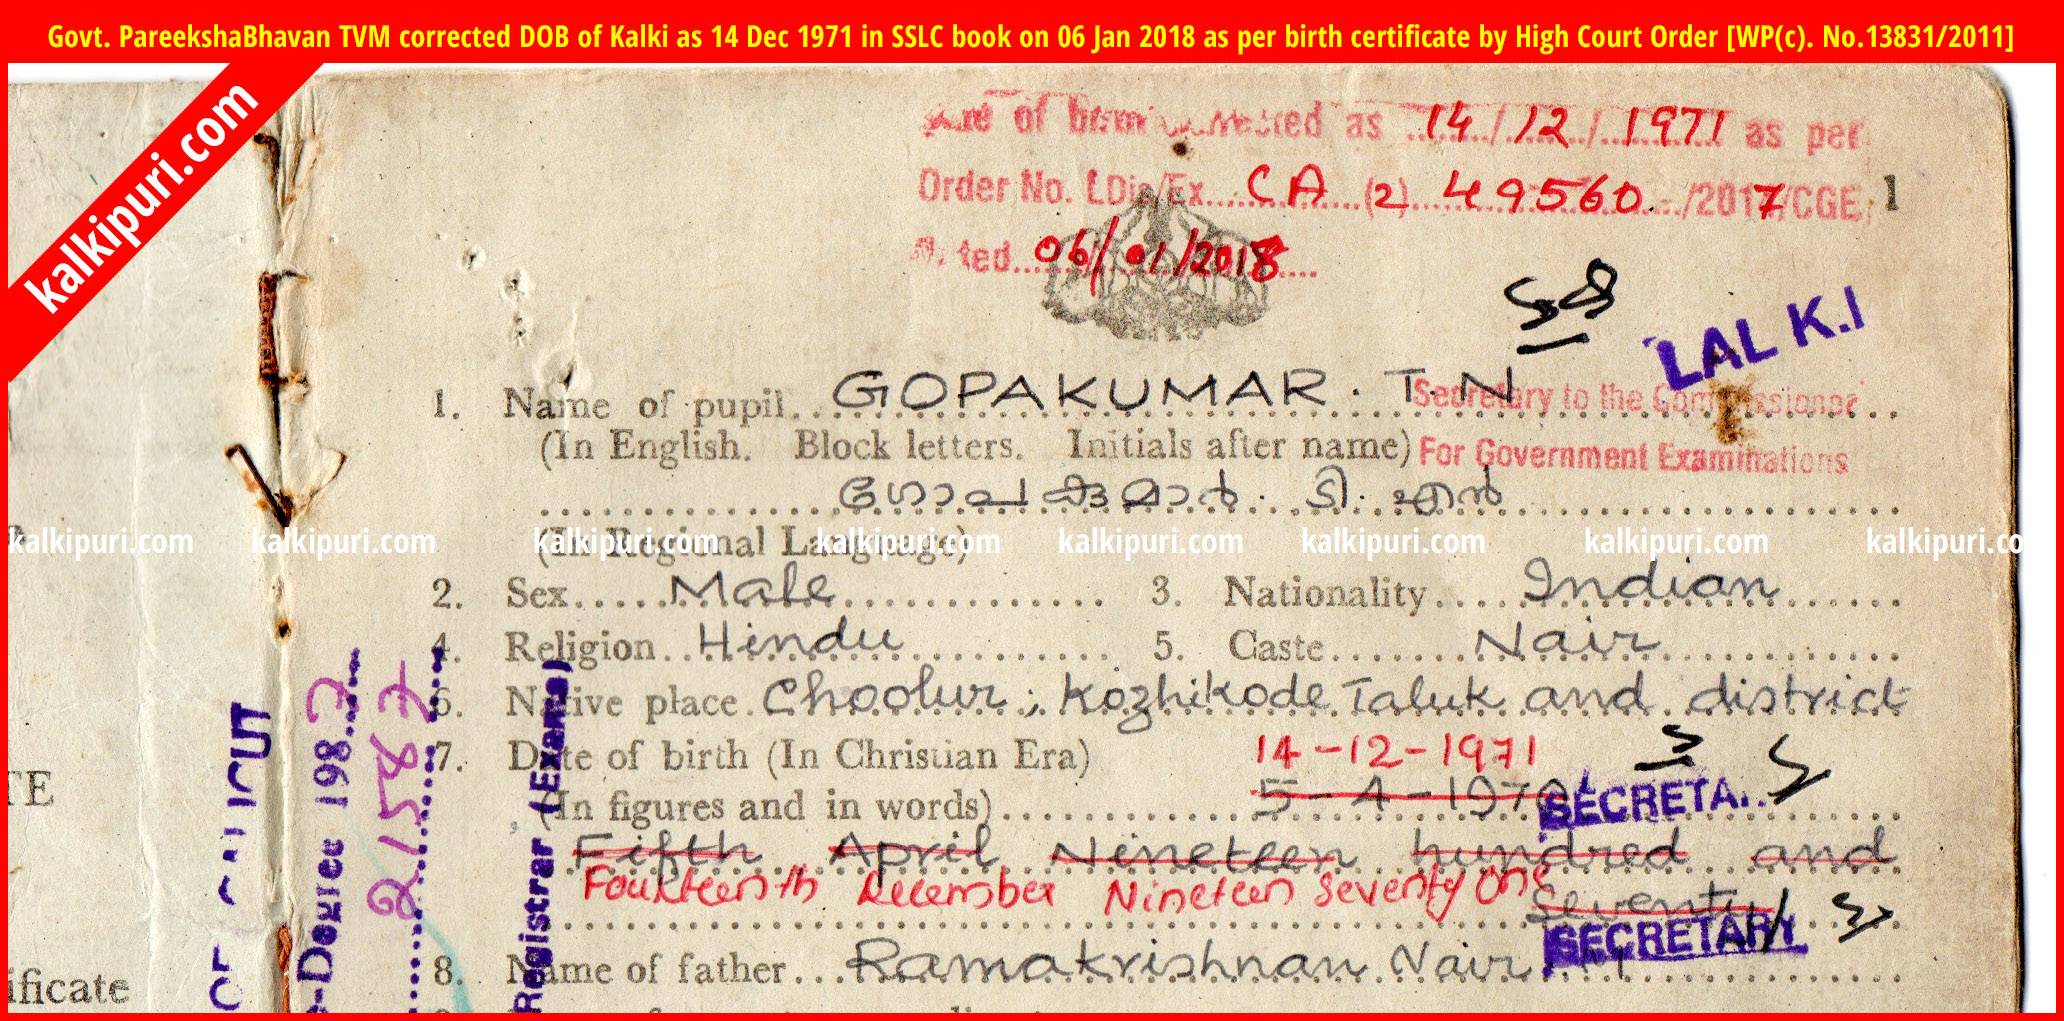 Govt. PareekshaBhavan TVM corrected DOB of Kalki as 14 Dec 1971 in SSLC book on 06 Jan 2018 as per birth certificate by High Court Order [WP(c). No.13831/2011]
kalkipuri.com
of corrected as 14/12/1971 as per
Order No. CA (2) 49560 /2017/CGE
1
06/01/2018
LAL K.I
1. Name of pupil GOPAKUMAR. T N
Secretary to the Commissioner
(In English. Block letters. Initials after name)
For Government Examinations
ഗോപകുമാർ. ടി. എൻ
kalkipuri.com kalkipuri.com kalkipuri.com kalkipuri.com kalkipuri.com kalkipuri.com kalkipuri.com kalkipuri.co
(In Regional Language)
2. Sex Male 3. Nationality Indian
4. Religion Hindu 5. Caste Nair
6. Native place Choolur, Kozhikode Taluk and district
7. Date of birth (In Christian Era) 14-12-1971
(In figures and in words) 5-4-1970
SECRETA
Fifth April Nineteen hundred and
Fourteenth December Nineteen Seventy One
Seventy
SECRETARY
8. Name of father Ramakrishnan Nair
TE
ificate
CALICUT
-Degree 1987
21587
Registrar (Exams)